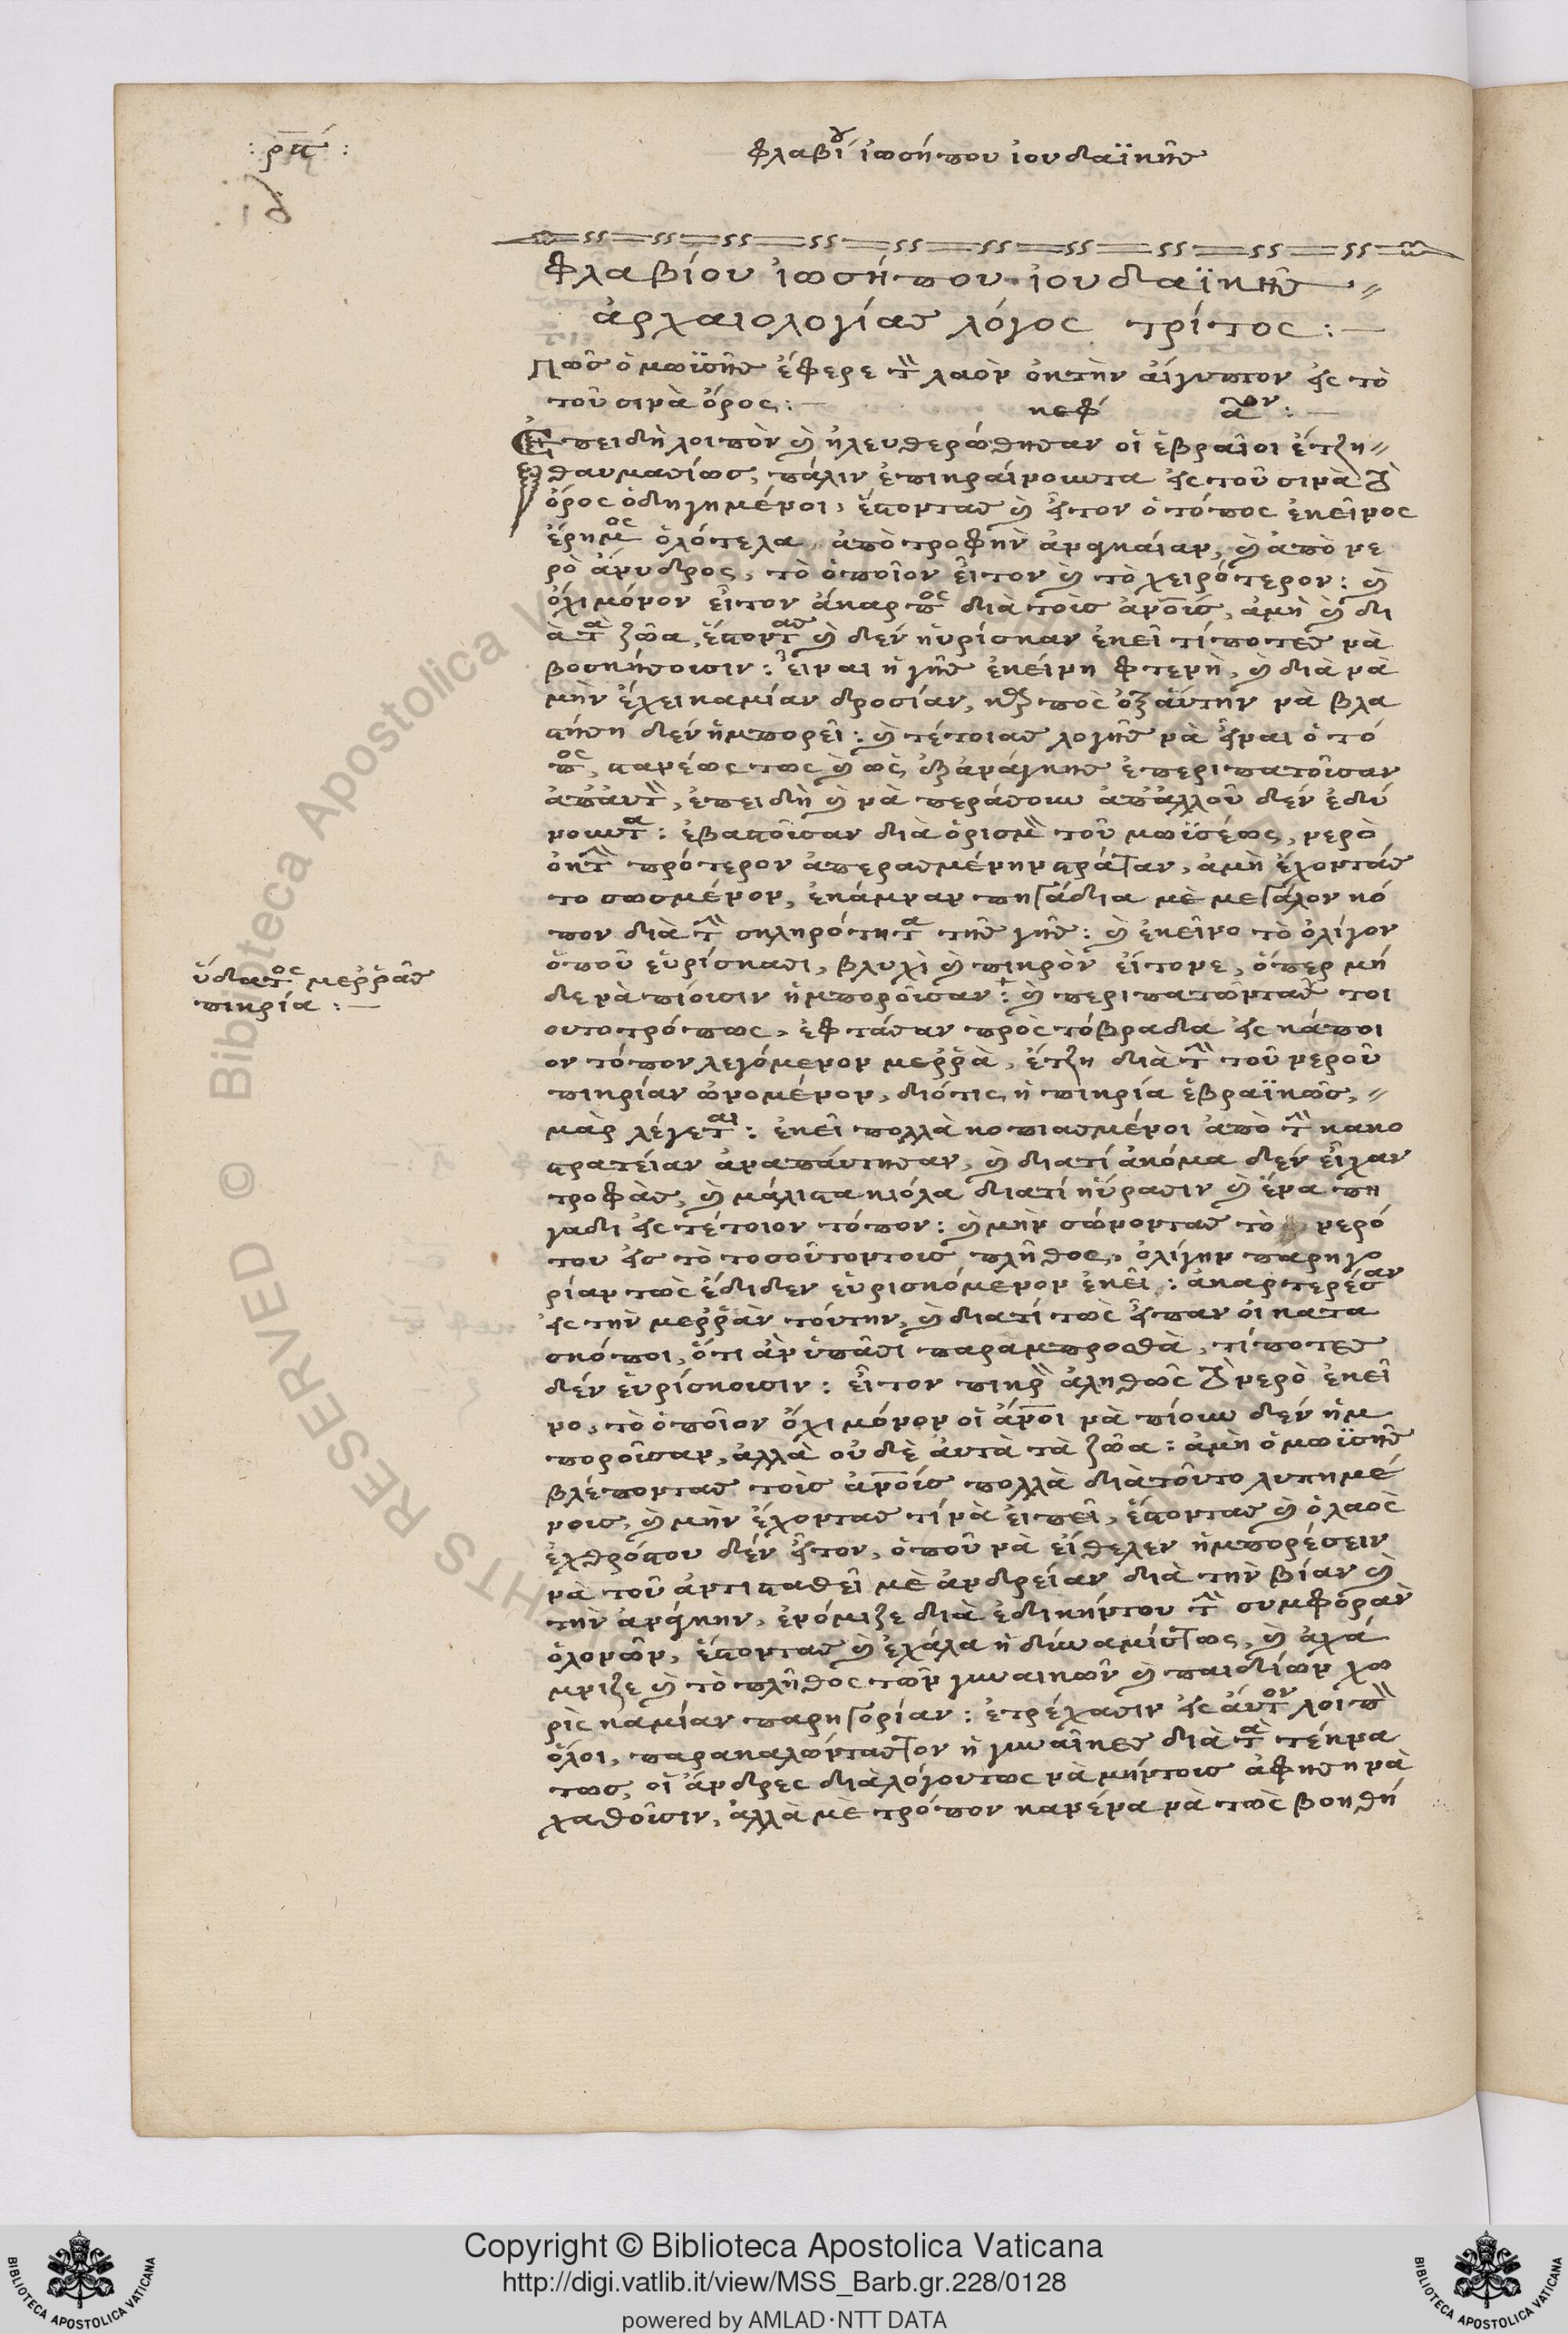 : ρπ :
Φλαβίου ἰωσήπου ἰουδαϊκῆς
Φλαβίου ἰωσήπου ἰουδαϊκῆς
ἀρχαιολογίας λόγος τρίτος : —
Πῶς ὁ μωϊσῆς ἔφερε τὸν λαὸν ἐκ τὴν αἴγυπτον εἰς τὸ
τοῦ σινὰ ὄρος : — κεφ αον : —
Ἐπειδὴ λοιπὸν καὶ ἠλευθερώθησαν οἱ ἑβραῖοι ἔτζη
θαυμασίως, πάλιν ἐπικραίνουντα εἰς τοῦ σινὰ τὸ
ὄρος ὁδηγημένοι, ἔστοντας καὶ ἦτον ὁ τόπος ἐκεῖνος
ἔρημος ὁλότελα ἀπὸ τροφὴν ἀναγκαίαν, καὶ ἀπὸ νε
ρὸ ἄνυδρος, τὸ ὁποῖον εἶτον καὶ τὸ χειρότερον : καὶ
ὄχι μόνον εἶτον ἄκαρπος διὰ τοὶς ἀνοὶς, ἀμὴ καὶ δι
ὰ τὰ ζῶα, ἔστοντας καὶ δὲν ηὑρίσκαν ἐκεῖ τίποτες νὰ
βοσκήσουσιν : εἶναι ἡ γῆς ἐκείνη φτενὴ, καὶ διὰ νὰ
μὴν ἔχει καμίαν δροσίαν, καρπὸς ἐξ αὐτὴν νὰ βλα
στήση δὲν ἠμπορεῖ : καὶ τέτοιας λογῆς νὰ εἶναι ὁ τό
πος, στανέως τως καὶ ὡς ἐξ ἀνάγκης ἐπεριπατοῦσαν
ἀπ' αὐτὸν, ἐπειδὴ καὶ νὰ περάσουν ἀπ' ἀλλοῦ δὲν ἐδύ
νουντα : ἐβαστοῦσαν διὰ ὁρισμὸν τοῦ μωϊσέως, νερὸ
ἐκ τὴν πρότερον ἀπερασμένην στράταν, ἀμὴ ἔχοντάς
το σωσμένον, ἐκάμναν πηγάδια μὲ μεγάλον κό
πον διὰ τὴν σκληρότητα τῆς γῆς : καὶ ἐκεῖνο τὸ ὀλίγον
ὁποῦ εὑρίσκασι, βλυχὶ καὶ πικρὸν εἴτονε, ὅπερ μή
δε νὰ πίουσιν ἠμποροῦσαν : καὶ περιπατῶντας τοι
ουτοτρόπως, ἐφτάσαν πρὸς τόβραδα εἰς κάποι
ον τόπον λεγόμενον μεῤῥὰ, ἔτζη διὰ τὴν τοῦ νεροῦ
πικρίαν ὠνομένον, διότις ἡ πικρία ἑβραϊκῶς,
μὰρ λέγεται : ἐκεῖ πολλὰ κοπιασμένοι ἀπὸ τὴν κακο
στρατείαν ἀναπάυτησαν, καὶ διατί ἀκόμα δὲν εἶχαν
τροφὰς, καὶ μάλιστα κιόλα διατί ηὕρασιν καὶ ἕνα πη
γάδι εἰς τέτοιον τόπον : καὶ μὴν σώνοντας τὸ νερό
του εἰς τὸ τοσοῦτοντοις πλῆθος, ὀλίγην παρηγο
ρίαν τως ἔδιδεν εὑρισκόμενον ἐκεῖ : ἀκαρτερέσαν
εἰς τὴν μεῤῥὰν τούτην, καὶ διατί τως εἶπαν οἱ κατα
σκόποι, ὅτι ἀν ὑπᾶσι παραμπροσθὰ, τίποτες
δὲν εὑρίσκουσιν : εἶτον πικρὸν ἀληθῶς τὸ νερὸ ἐκεῖ
νο, τὸ ὁποῖον ὄχι μόνον οἱ ἄνοι νὰ πίουν δὲν ἠμ
ποροῦσαν, ἀλλὰ οὐδὲ αὐτὰ τὰ ζῶα : ἀμὴ ὁ μωϊσῆς
βλέποντας τοὶς ἀνοὶς πολλὰ διὰ τοῦτο λυπημέ
νοις, καὶ μὴν ἔχοντας τί νὰ εἰπεῖ, ἔστοντας καὶ ὁ λαὸς
ἐχθρόςτου δὲν εἶτον, ὁποῦ νὰ εἴθελεν ἠμπορέσειν
νὰ τοῦ ἀντισταθεῖ μὲ ἀνδρείαν διὰ τὴν βίαν καὶ
τὴν ἀνάγκην, ἐνόμιζε διὰ ἐδικήντου τὴν συμφορὰν
ὁλονῶν, ἔστοντας καὶ ἐχάλα ἡ δύναμίςτως, καὶ ἀχά
μνιζε καὶ τὸ πλῆθος τῶν γυναικῶν καὶ παιδίων χω
ρὶς καμίαν παρηγορίαν : ἐτρέχασιν εἰς αὐτὸν λοιπὸν
ὅλοι, παρακαλῶντάςτον ἡ γυναῖκες διὰ τὰ τέκνα
τως, οἱ ἄνδρες διὰ λόγουτως νὰ μήντοις ἀφήση νὰ
χαθοῦσιν, ἀλλὰ μὲ τρόπον κανένα νὰ τως βοηθή
ὕδατος μεῤῥᾶς
πικρία : —
Copyright © Biblioteca Apostolica Vaticana
http://digi.vatlib.it/view/MSS_Barb.gr.228/0128
powered by AMLAD·NTT DATA